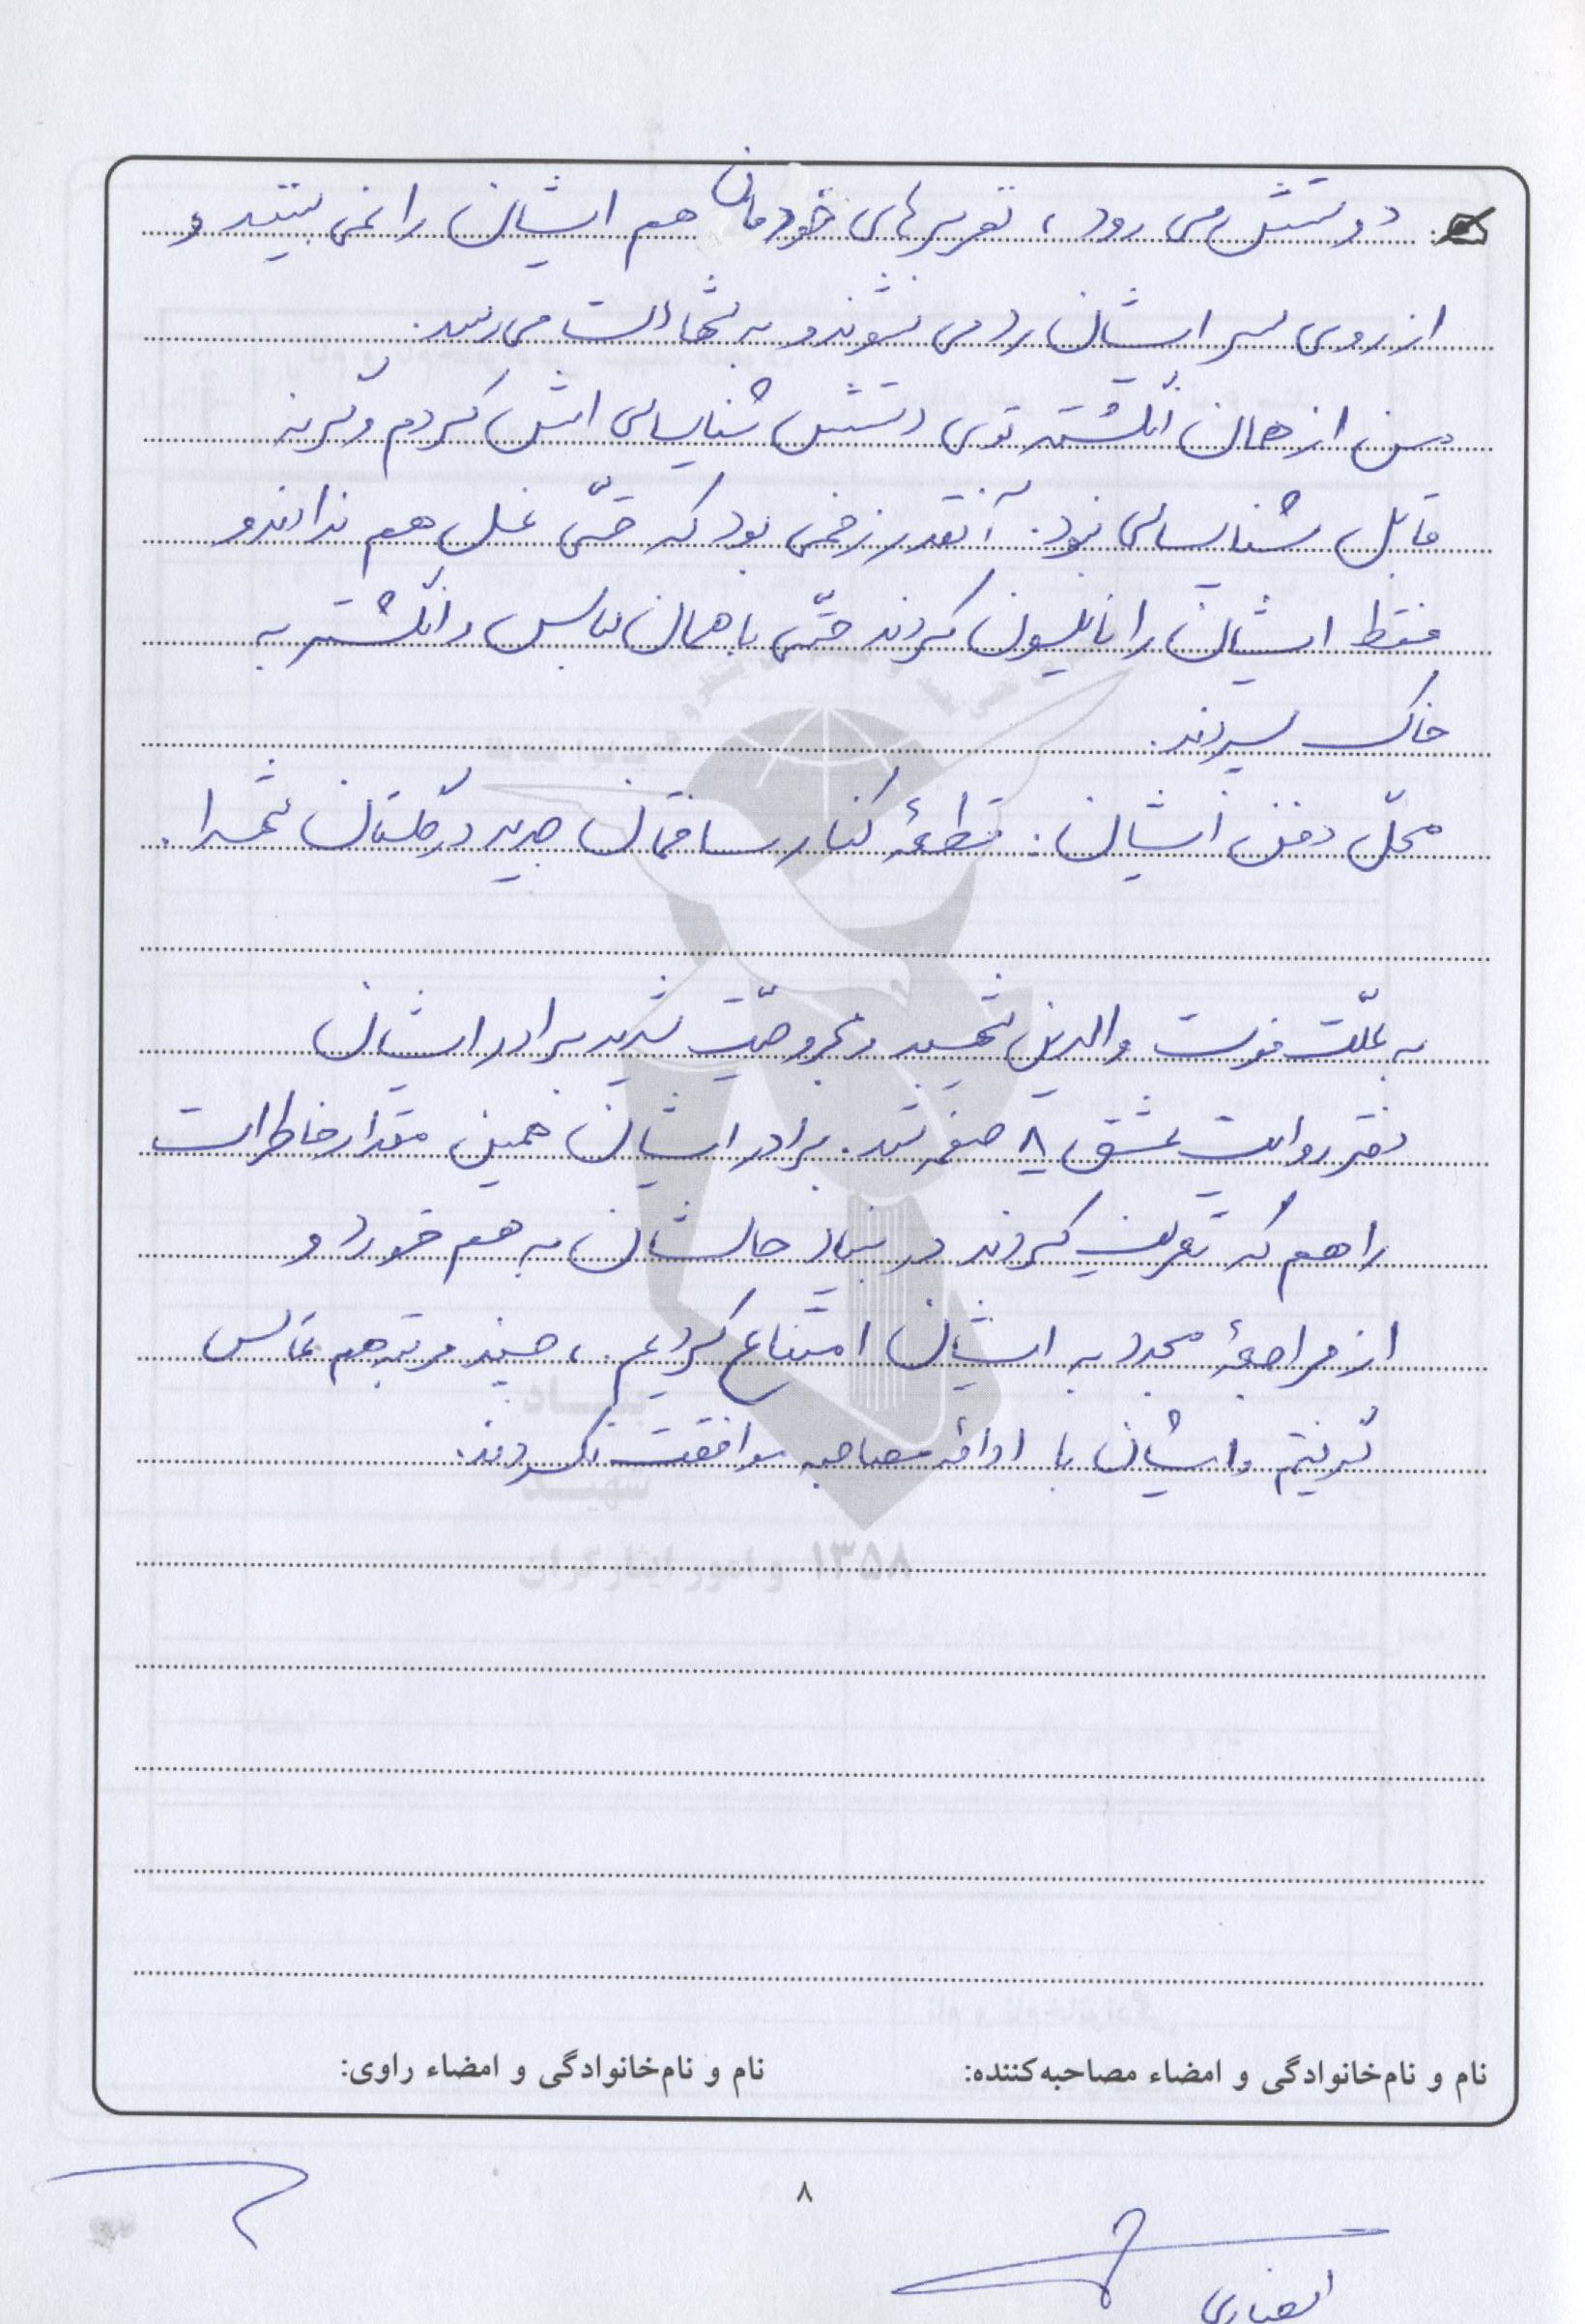 دوستش می رود، نفربرهای خودمان هم ایشان را نمی بینند و
از روی سر ایشان رد می شوند و به شهادت می رسد.
من از همان انگشتر توی دستش شناسایی اش کردم وگرنه
قابل شناسایی نبود. آنقدر زخمی بود که حتّی غسل هم ندادند و
فقط ایشان را نایلیون کردند حتّی با همان لباس و انگشتر به
خاک سپردند.
محلّ دفن ایشان: قطعهٔ کنار ساختمان جدید در گلستان شهدا.
به علّت فوت والدین شهید و مجروحیّت شدید برادر ایشان
دفتر روایت عشق ۸ صفحه شد. برادر ایشان همین مقدار خاطرات
را هم که تعریف کردند در بنیاد حالشان به هم خورد و
از مراجعهٔ مجدد به ایشان امتناع کردیم، چند مرتبه هم تماس
گرفتیم و ایشان با ادامه مصاحبه موافقت نکردند.
بنیاد
شهید
۱۳۵۸ و امور ایثارگران
نام و نام‌خانوادگی و امضاء مصاحبه‌کننده: نام و نام‌خانوادگی و امضاء راوی:
۸
انصاری